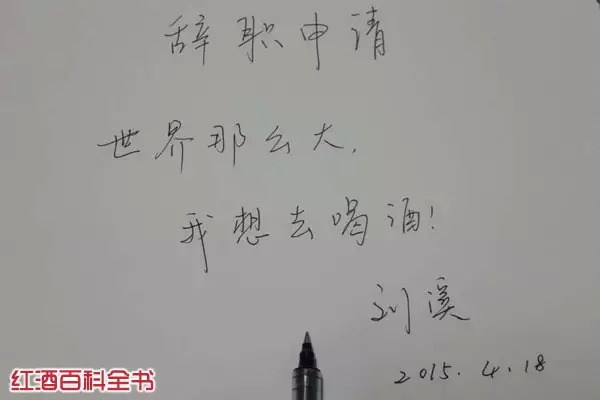 辞职申请
世界那么大,
我想去喝酒!
刘溪
2015.4.18
红酒百科全书